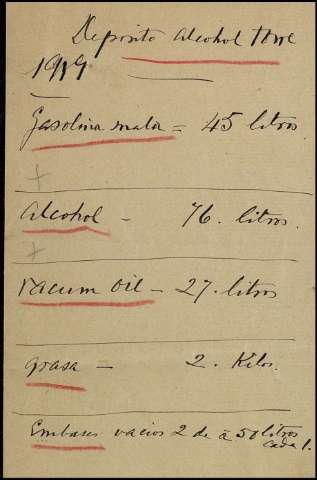 Deposito Alcohol
1919
Gasolina mala = 45 litros
+
Alcohol - 76. litros.
+
Vacum Oil - 27. litros
grasa - 2. Kilos.
Embases vacios 2 de á 50 litros
cada 1.